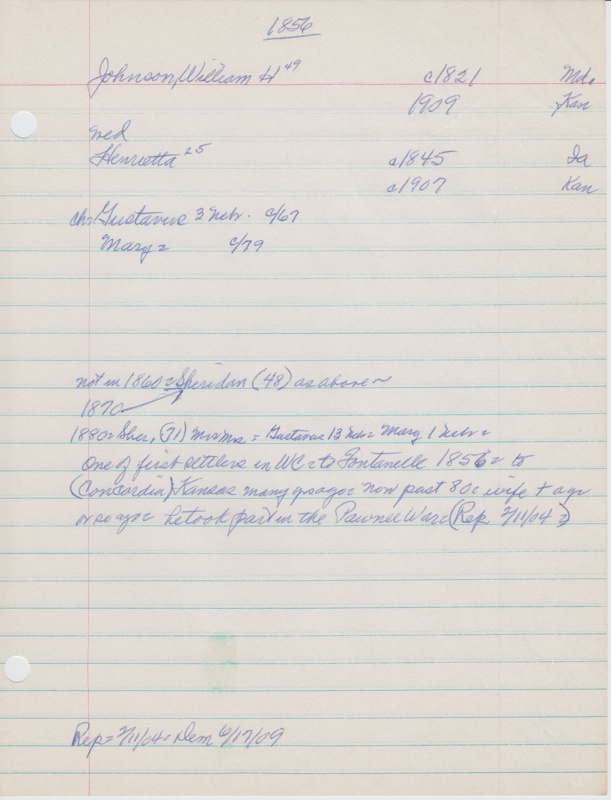 1856
Johnson, William H 49 c1821 Md.
1909 Kan
med
Henrietta 25 c1845 Ia
c1907 Kan
ch: Gustavus 3 Nebr. c/67
Mary = c/79
not in 1860 = Sheridan (48) as above ~
1870
1880 = Sher, (71) Mr Mrs = Gustavus 13 Neb = Mary 1 Nebr =
One of first settlers in WC = to Fontanelle 1856 = to
(Concordia) Kansas many yrs ago = now past 80 = wife + a yr
or so ago = he took part in the Pawnee War = (Rep 2/11/04 =)
Rep = 2/11/04 = Dem 6/17/09